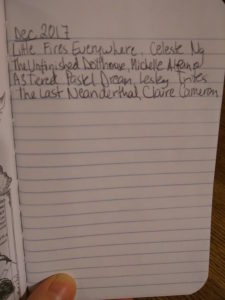 Dec 2017
Little Fires Everywhere, Celeste Ng
The Unfinished Dollhouse, Michelle
A3 Tered Pastel Dream, Lesley
The Last Neanderthal, Claire Cameron